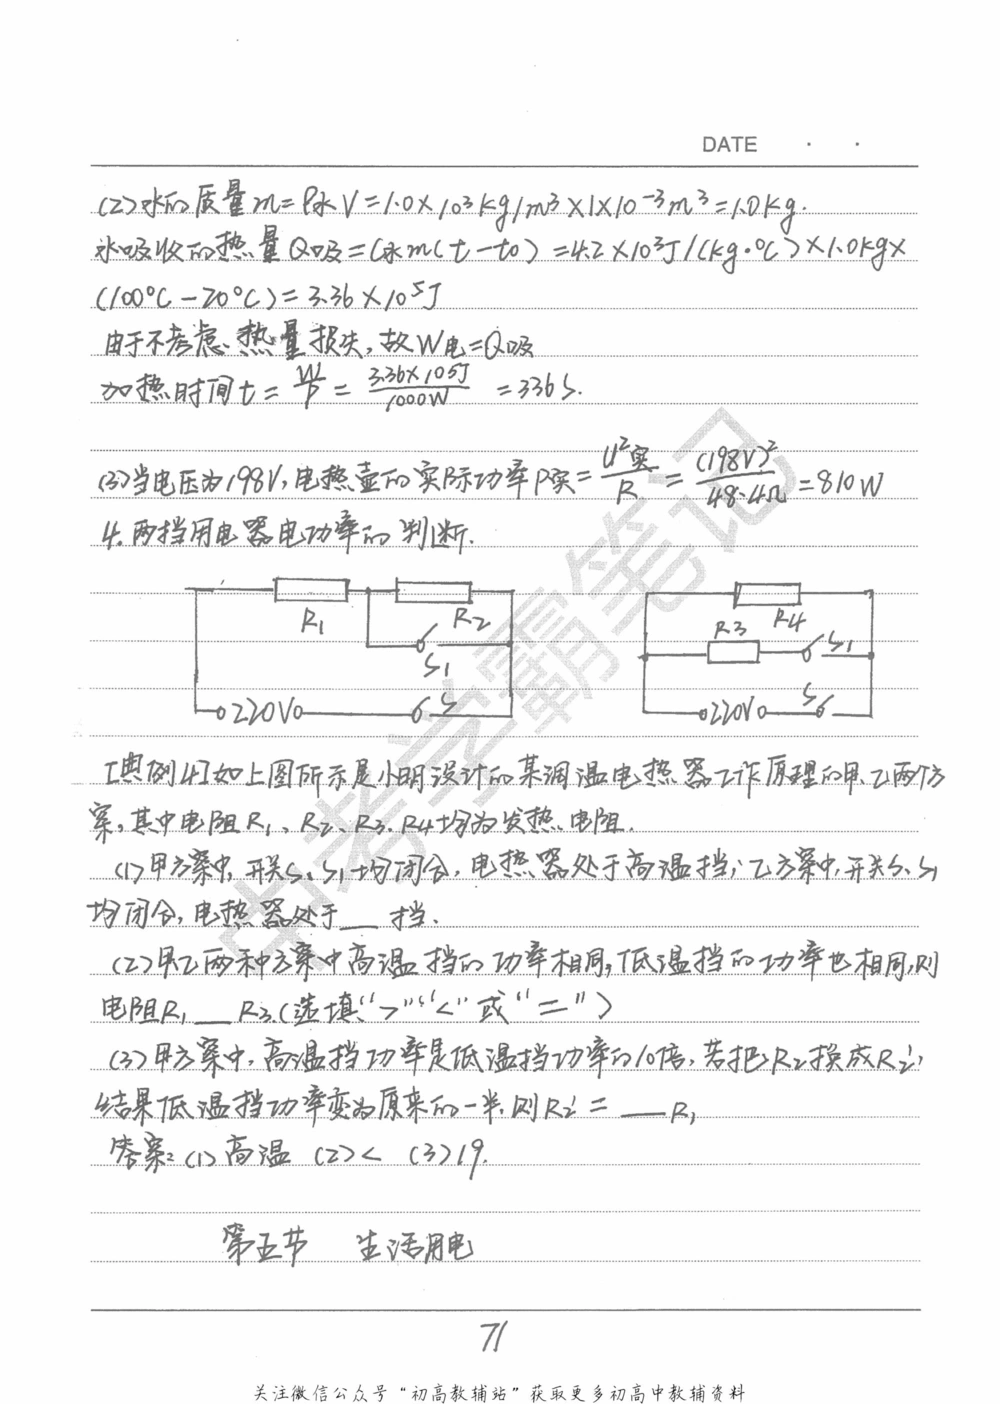 DATE · ·
(2)水的质量m=ρ水V=1.0×10³kg/m³×1×10⁻³m³=1.0kg.
水吸收的热量Q吸=C水m(t-t0)=4.2×10³J/(kg·℃)×1.0kg×
(100℃-20℃)=3.36×10⁵J
由于不考虑热量损失,故W电=Q吸
加热时间t=W/P=3.36×10⁵J/1000W=336s.
(3)当电压为198V,电热壶的实际功率P实=U²实/R=(198V)²/48.4Ω=810W
4.两挡用电器电功率的判断.
R1 R2 S1 S 220V
R4 R3 S1 S 220V
[典例4]如上图所示是小明设计的某调温电热器工作原理的甲、乙两个方
案,其中电阻R1、R2、R3、R4均为发热电阻.
(1)甲方案中,开关S、S1均闭合,电热器处于高温挡;乙方案中,开关S、S1
均闭合,电热器处于___挡.
(2)甲乙两种方案中高温挡的功率相同,低温挡的功率也相同,则
电阻R1___R3.(选填“>”“<”或“=”)
(3)甲方案中,高温挡功率是低温挡功率的10倍,若把R2换成R2',
结果低温挡功率变为原来的一半,则R2'=___R1
答案:(1)高温 (2)< (3)19.
第五节 生活用电
71
关注微信公众号“初高教辅站”获取更多初高中教辅资料
中考学霸笔记